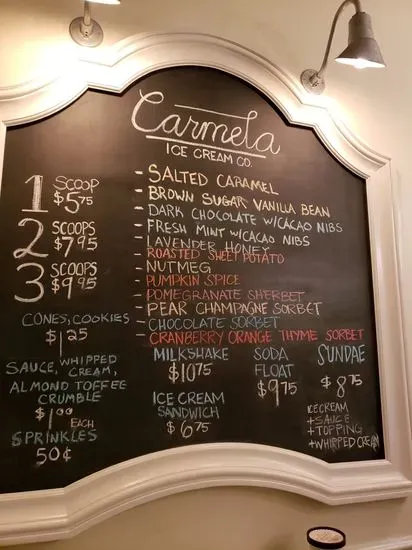 Carmela
ICE CREAM CO.
1 SCOOP $5.75
2 SCOOPS $7.95
3 SCOOPS $9.95
CONES, COOKIES
$1.25
SAUCE, WHIPPED
CREAM,
ALMOND TOFFEE
CRUMBLE
$1.00
EACH
SPRINKLES
50¢
- SALTED CARAMEL
- BROWN SUGAR VANILLA BEAN
- DARK CHOCOLATE W/CACAO NIBS
- FRESH MINT W/CACAO NIBS
- LAVENDER HONEY
- ROASTED SWEET POTATO
- NUTMEG
- PUMPKIN SPICE
- POMEGRANATE SHERBET
- PEAR CHAMPAGNE SORBET
- CHOCOLATE SORBET
- CRANBERRY ORANGE THYME SORBET
MILKSHAKE
$10.75
ICE CREAM
SANDWICH
$6.75
SODA
FLOAT
$9.75
SUNDAE
$8.75
ICECREAM
+SAUCE
+TOPPING
+WHIPPED CREAM